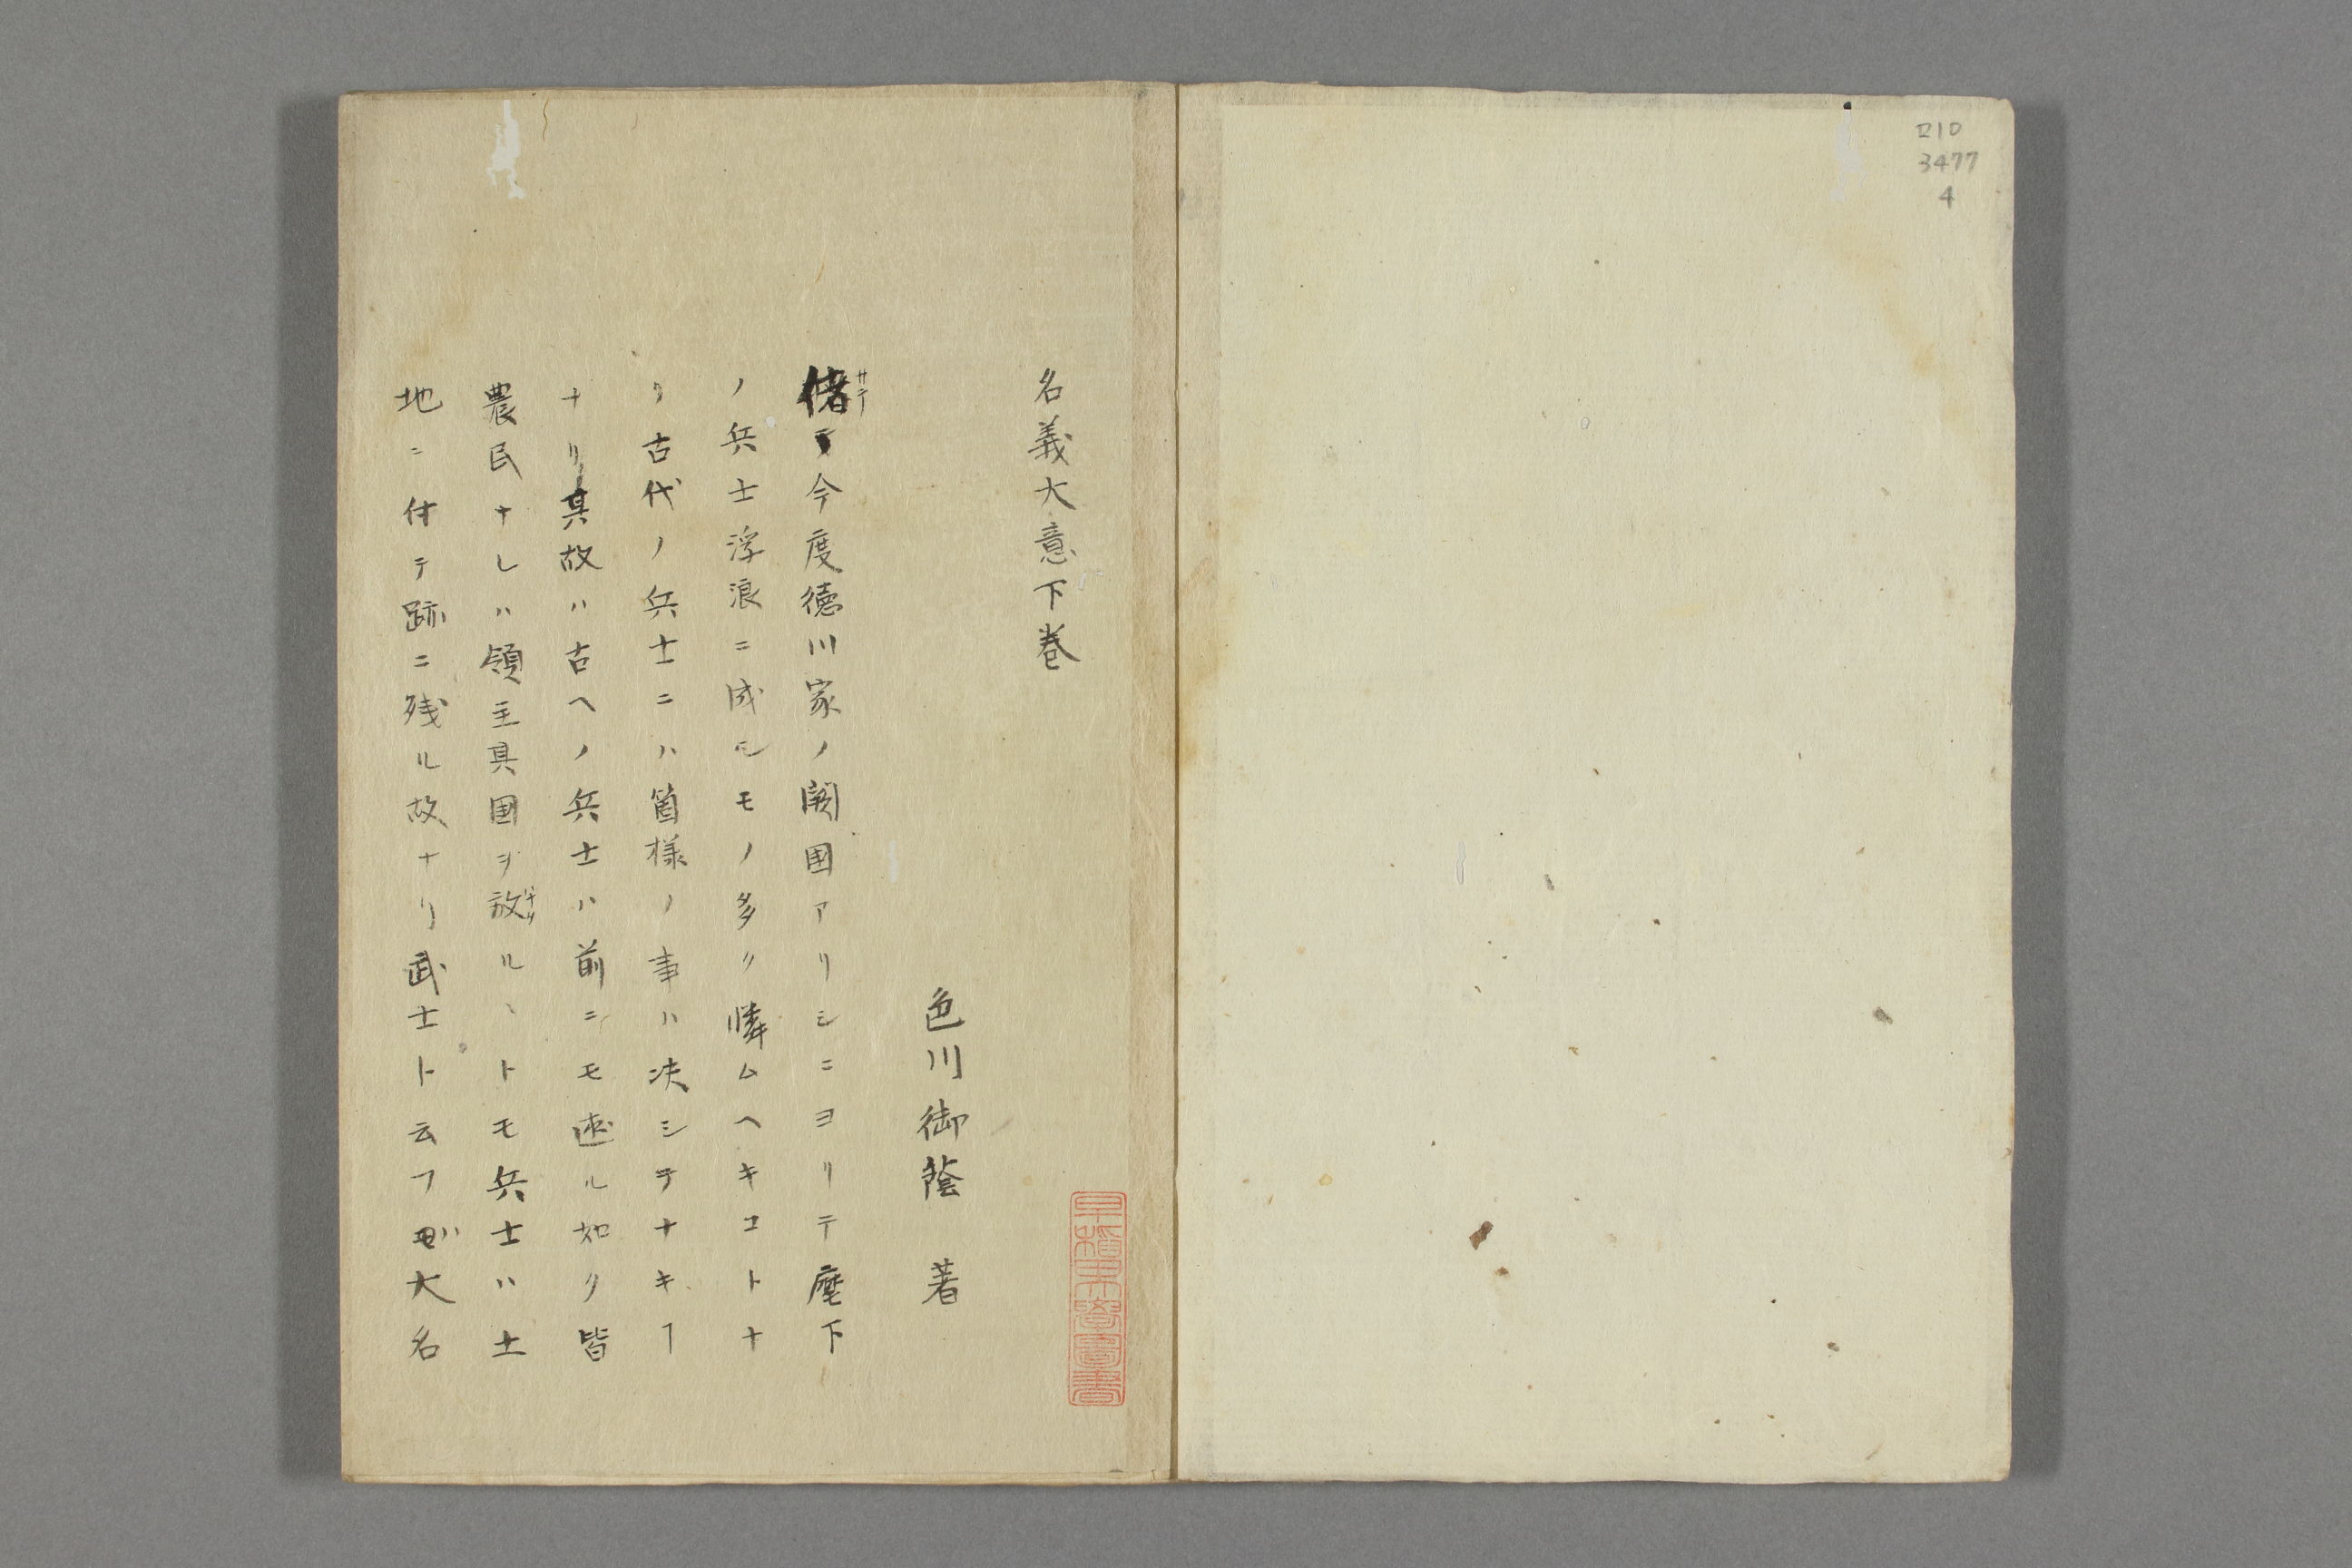 ロ10
3477
4
名義大意下巻
色川御蔭 著
早稲田大学図書
偖テ今度徳川家ノ闕国アリシニヨリテ麾下
サテ
ノ兵士浮浪ニ成シモノ多ク憐ムヘキコトナ
リ古代ノ兵士ニハ箇様ノ事ハ决シテナキヿ
ナリ其故ハ古ヘノ兵士ハ前ニモ述ル如ク皆
農民ナレハ領主其国ヲ放ルヽトモ兵士ハ土
ハナタ
地ニ付テ跡ニ残ル故ナリ武士ト云フ大名